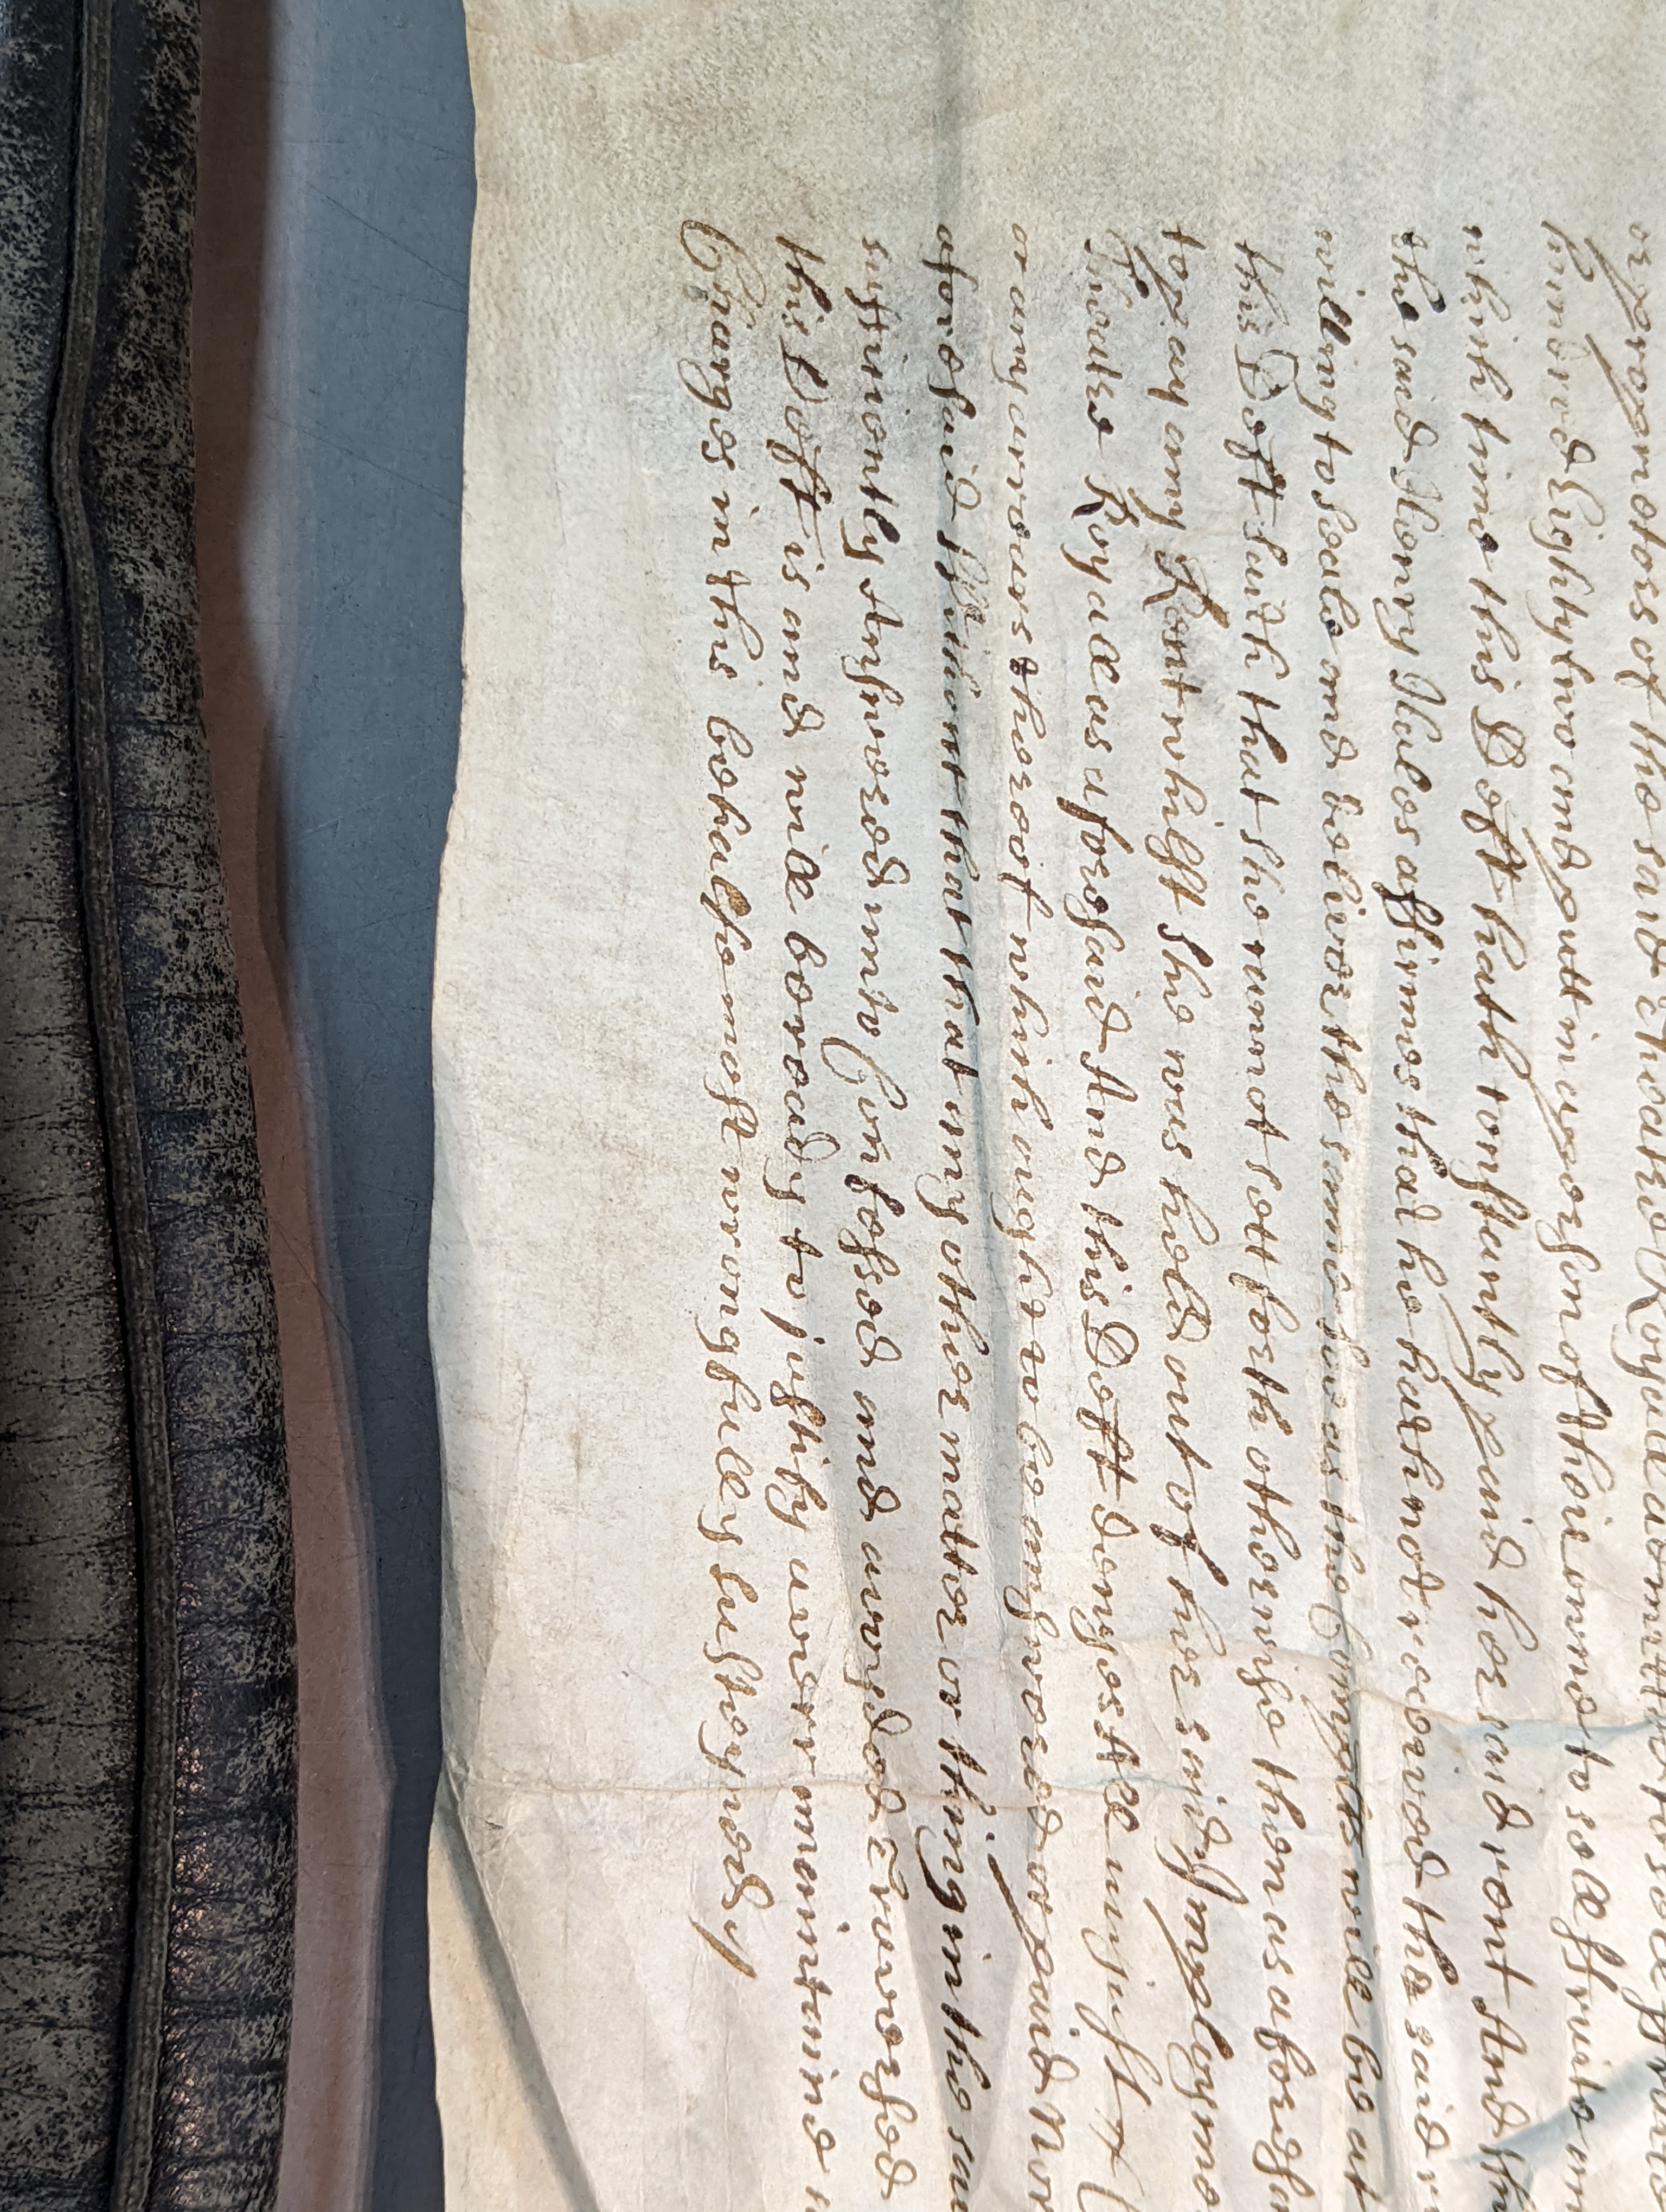 or propriators of the said Theatre Royall admitt
hundred Eighty two and putt in a person of theire owne to
which time this Deft hath constantly paid her said rent And
the said Henry Hales affirmes that he hath not received the said
willing to seale and deliver the same soe as the Complts will be att
this Deft saith that she cannot sett forth otherwise then as aforesa
to pay any Rent whilst she was held out of her said Imploymt
Theatre Royall as aforesaid And this Deft denyes all unjust
or any arreares thereof which ought to be answered or paid
aforesaid that that any other matter or thing in the said
sufficiently Answered unto Confessed and avoyded Traversed
this Deft is and will be ready to justify averr maintaine
Charges in this behalfe most wrongfully susteyned